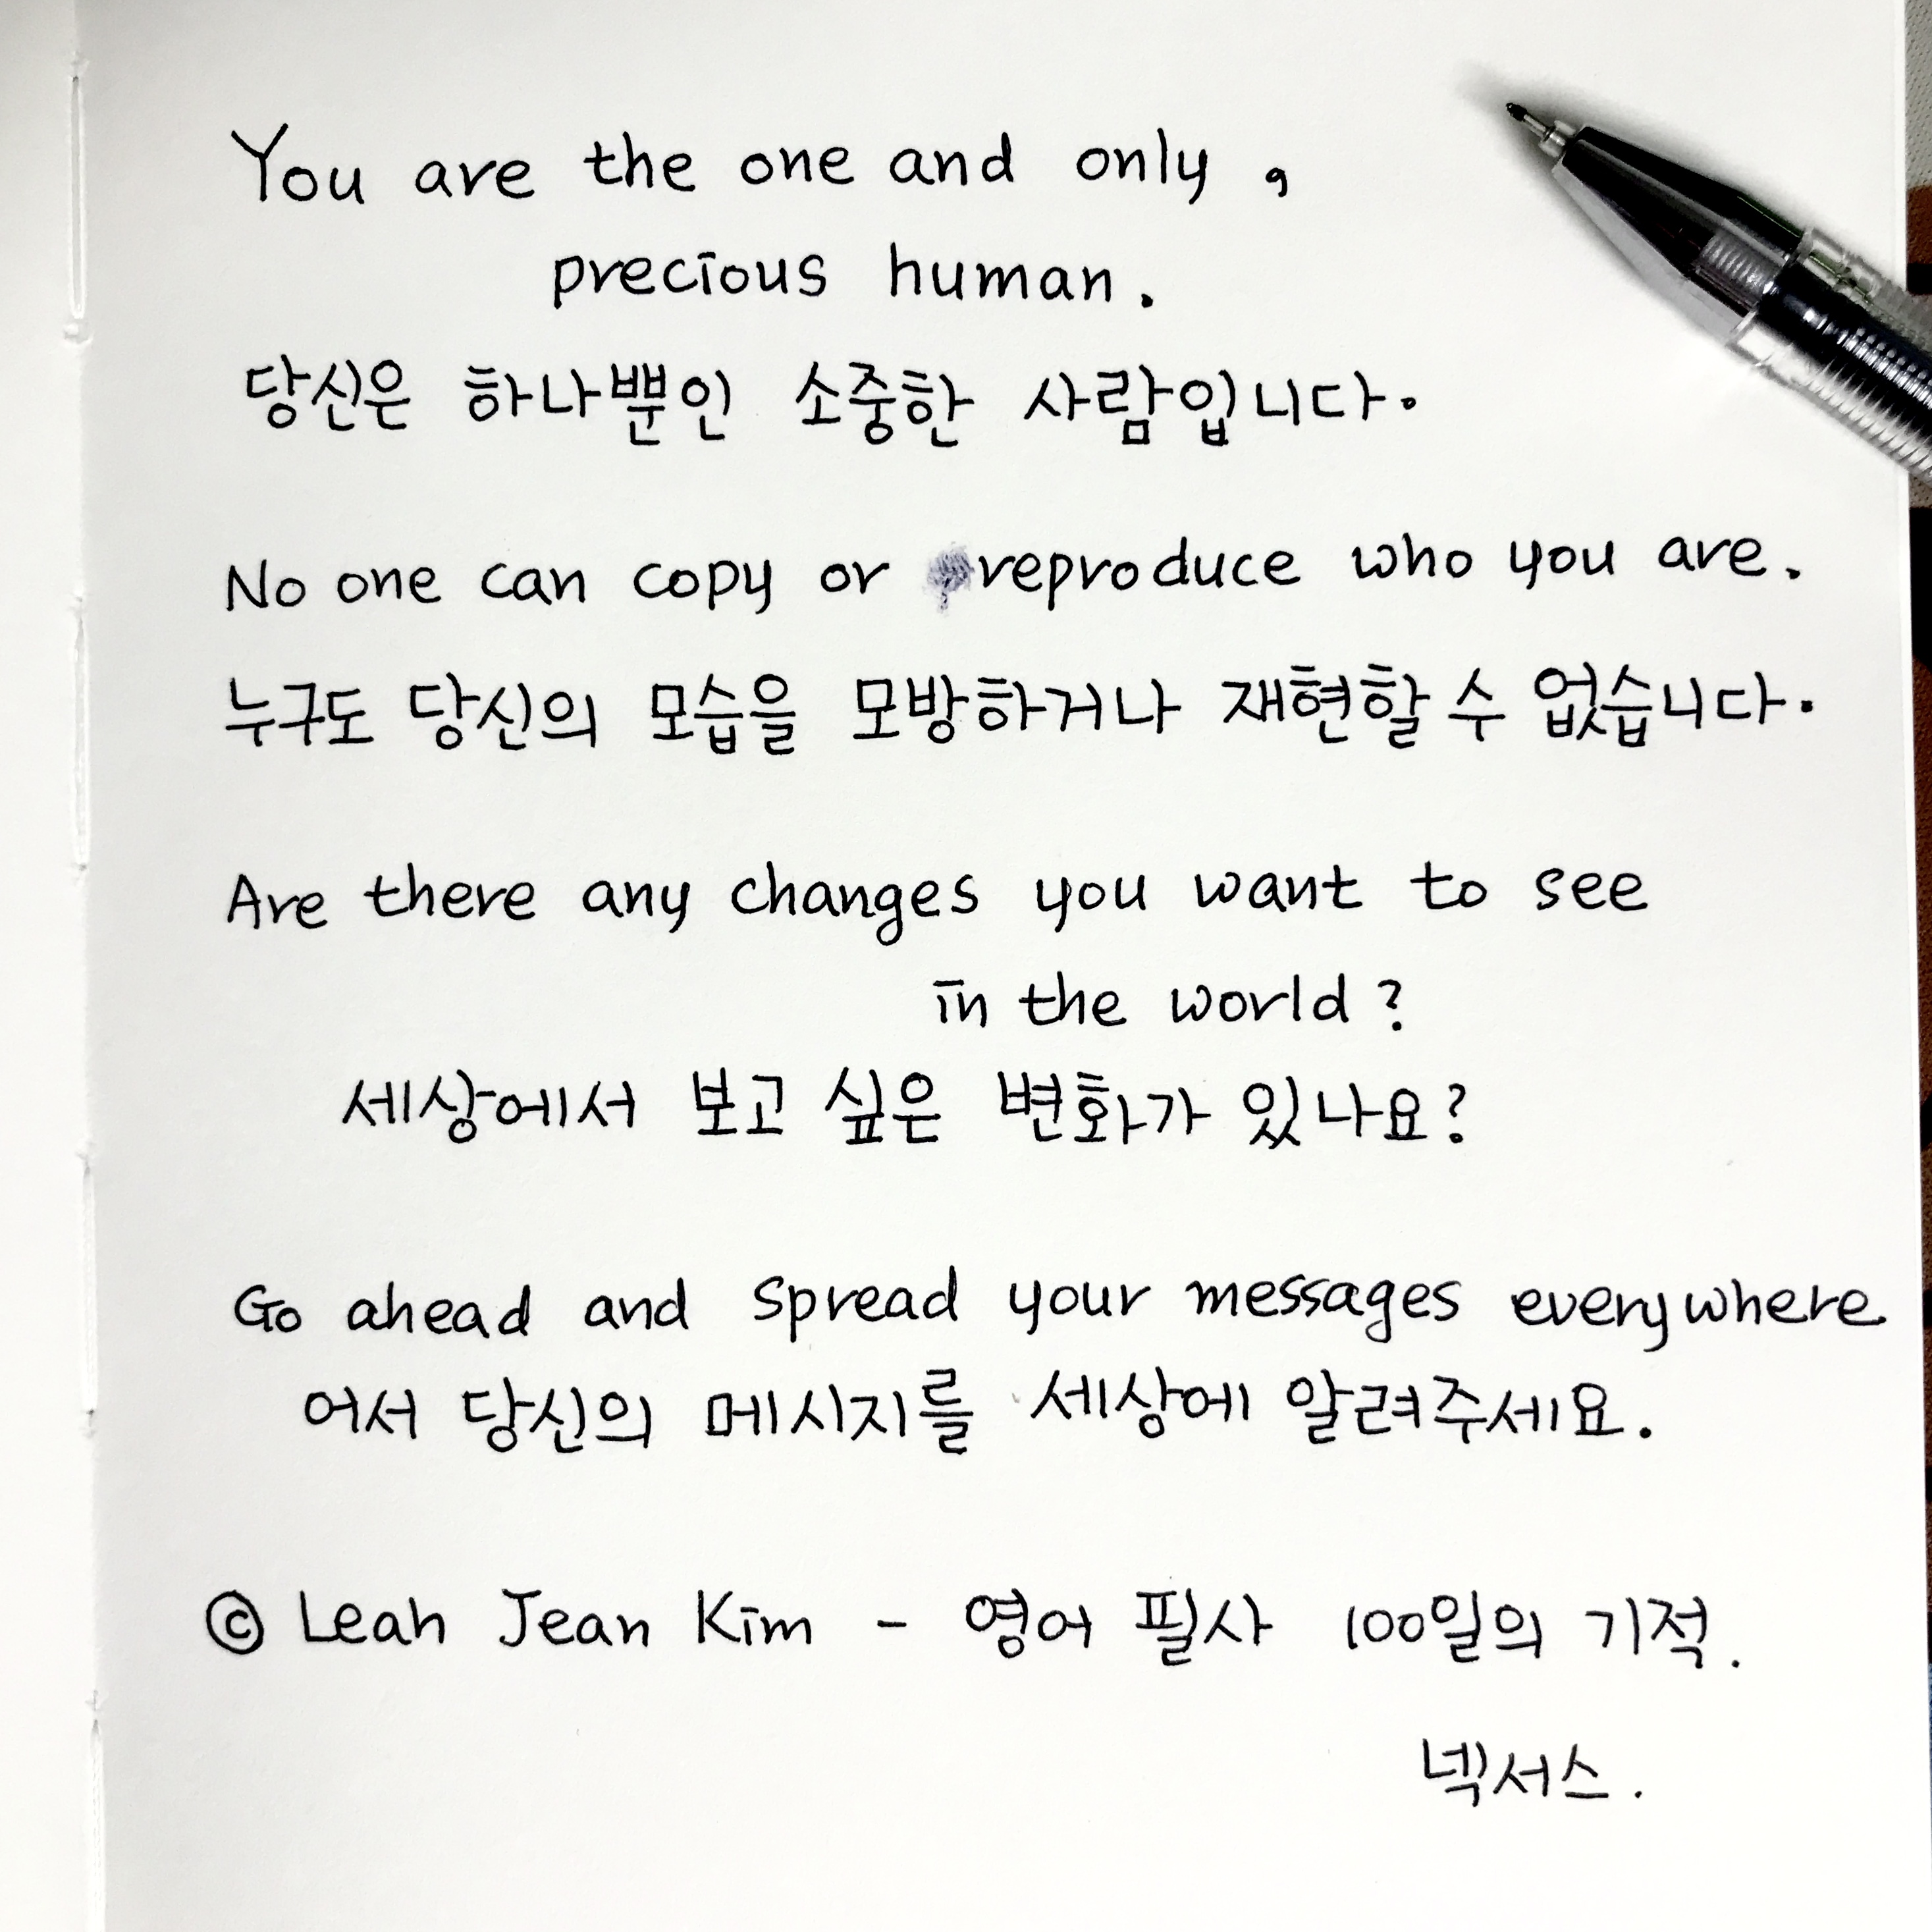 You are the one and only,
precious human.
당신은 하나뿐인 소중한 사람입니다.
No one can copy or reproduce who you are.
누구도 당신의 모습을 모방하거나 재현할 수 없습니다.
Are there any changes you want to see
in the world?
세상에서 보고 싶은 변화가 있나요?
Go ahead and spread your messages everywhere
어서 당신의 메시지를 세상에 알려주세요.
© Leah Jean Kim - 영어 필사 100일의 기적.
넥서스.